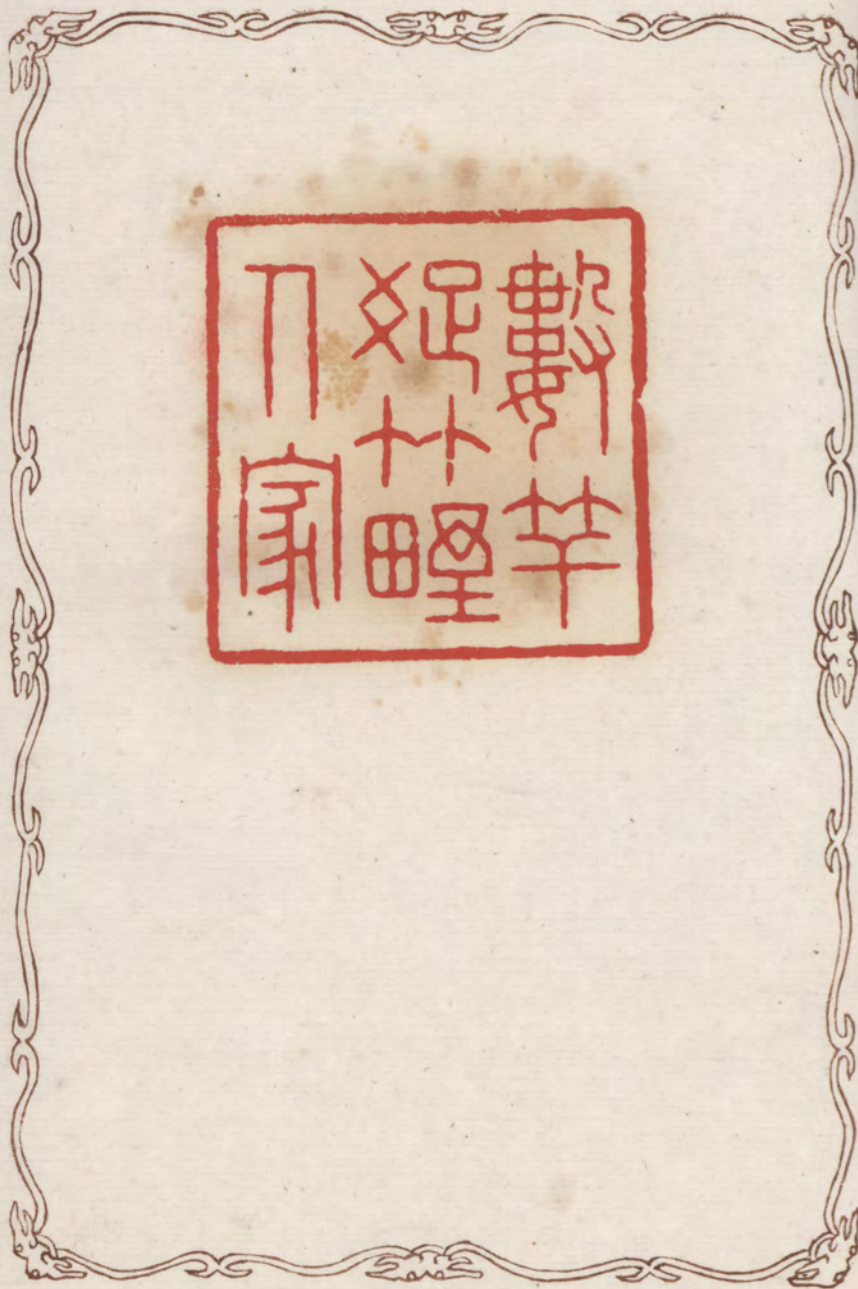 數竿
疏竹野
人家